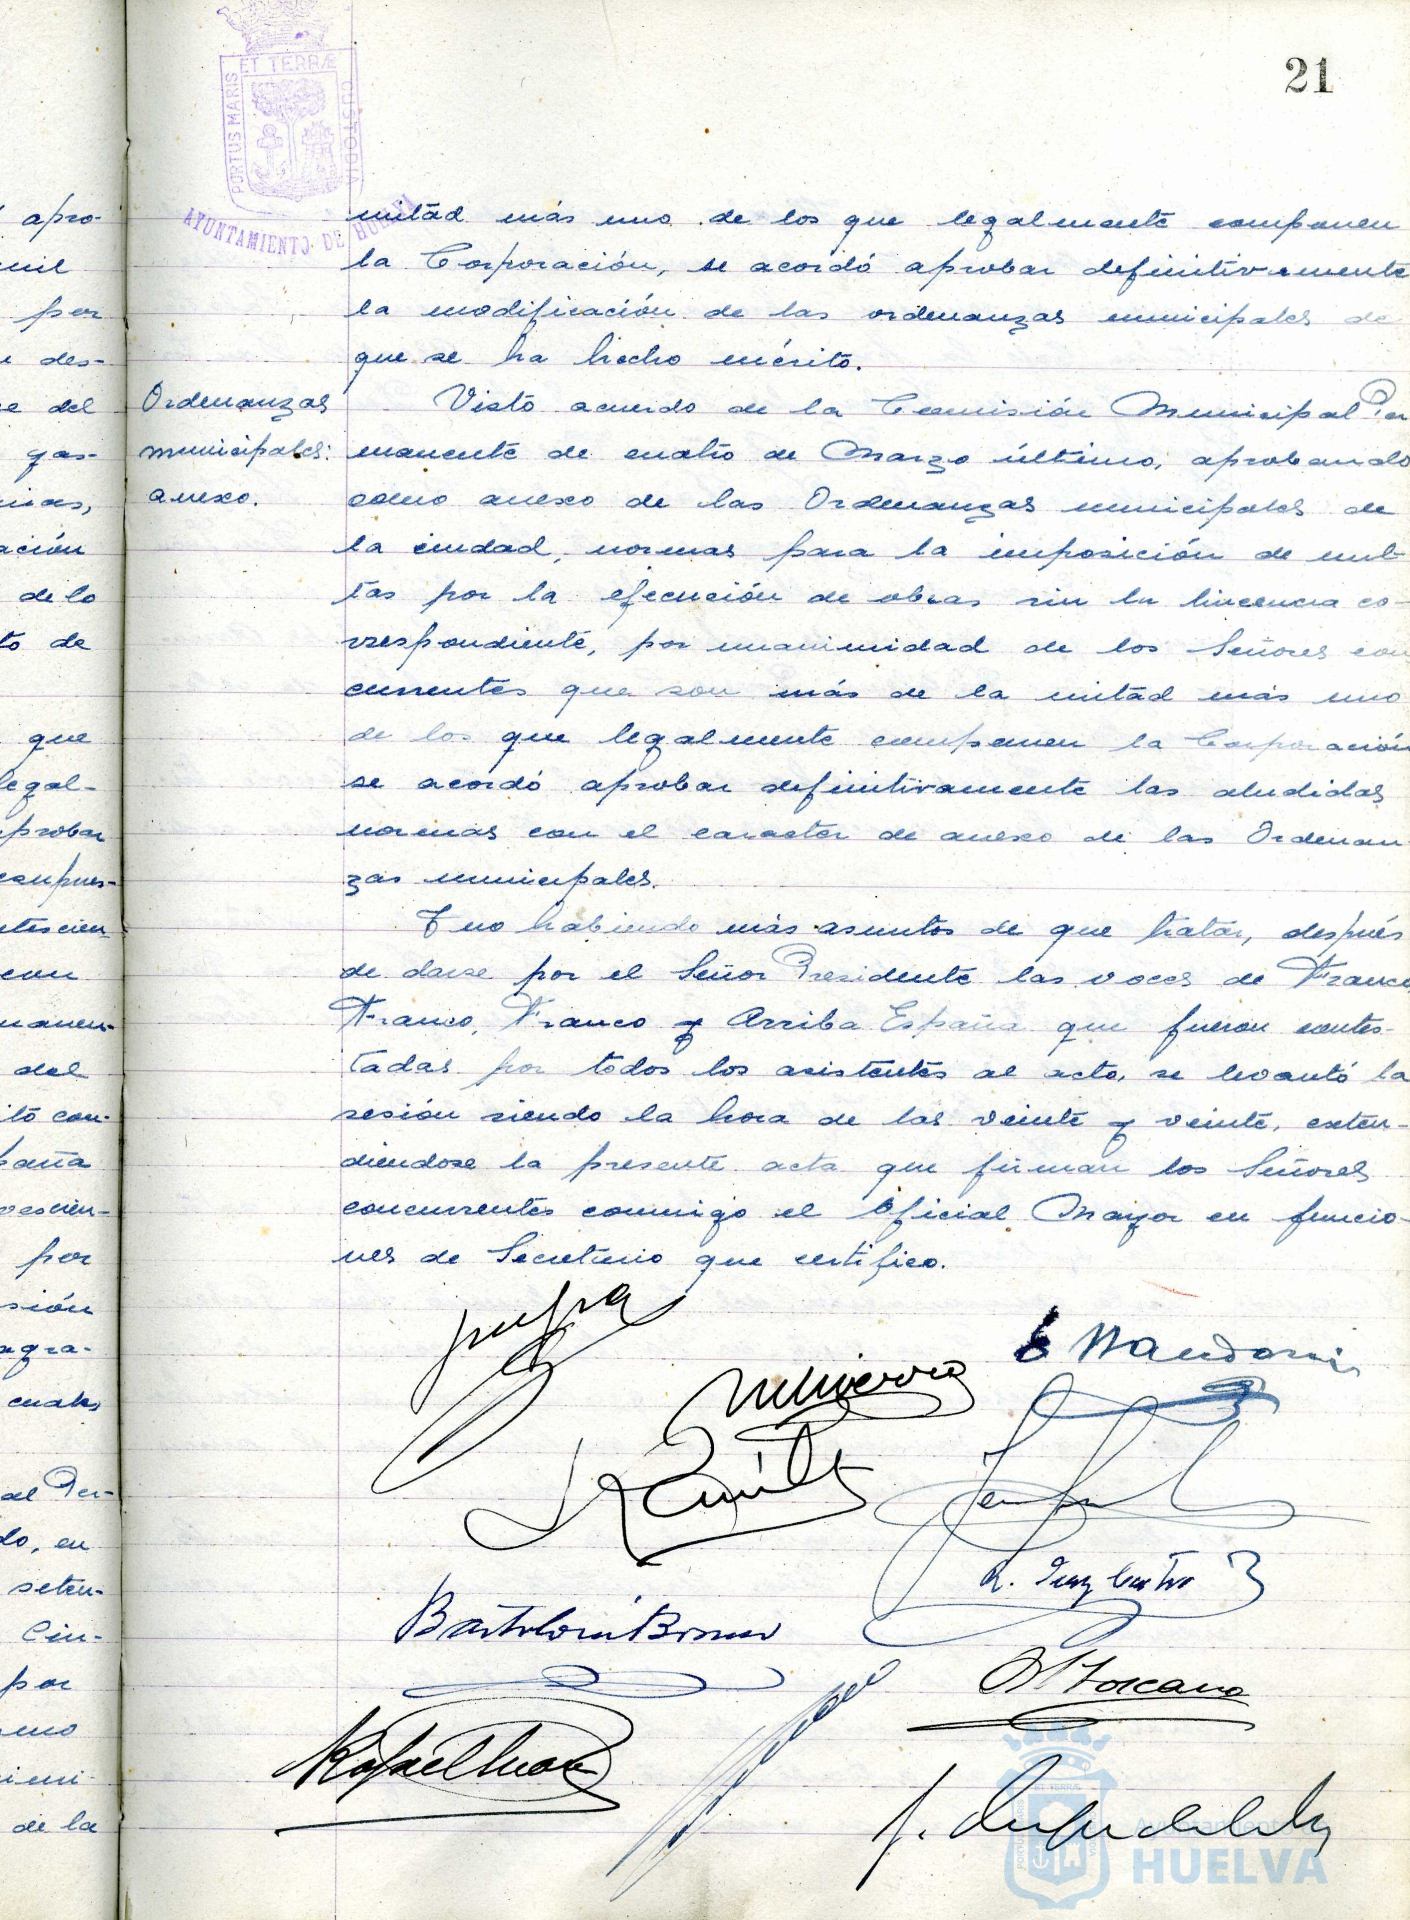 21
PORTUS MARIS ET TERRÆ CUSTODIA
AYUNTAMIENTO DE HUELVA
apro-
mil
por
des-
del
gas-
ación
de lo
to de
que
legal-
probar
compues-
con
manen-
del
itó con-
paña
por
sión
agra-
cuales
al Per-
do, en
seten-
Cin-
por
de la
mitad más uno de los que legalmente componen
la Corporación, se acordó aprobar definitivamente
la modificación de las ordenanzas municipales de
que se ha hecho mérito.
Ordenanzas
municipales:
anexo.
Visto acuerdo de la Comisión Municipal Per
manente de cuatro de Marzo último, aprobando
como anexo de las Ordenanzas municipales de
la ciudad, normas para la imposición de mul-
tas por la ejecución de obras sin la lincencia co-
rrespondiente, por unanimidad de los Señores con
currentes que son más de la mitad más uno
de los que legalmente componen la Corporación
se acordó aprobar definitivamente las aludidas
normas con el caracter de anexo de las Ordenan-
zas municipales.
Y no habiendo más asuntos de que tratar, después
de darse por el Señor Presidente las voces de Franco,
Franco, Franco y Arriba España que fueron contes-
tadas por todos los asistentes al acto, se levantó la
sesión siendo la hora de las veinte y veinte, exten-
diendose la presente acta que firman los Señores
concurrentes conmigo el Oficial Mayor en funcio-
nes de Secretario que certifico.
Bartolomé
Toscano
Rafael
Ayuntamiento
HUELVA